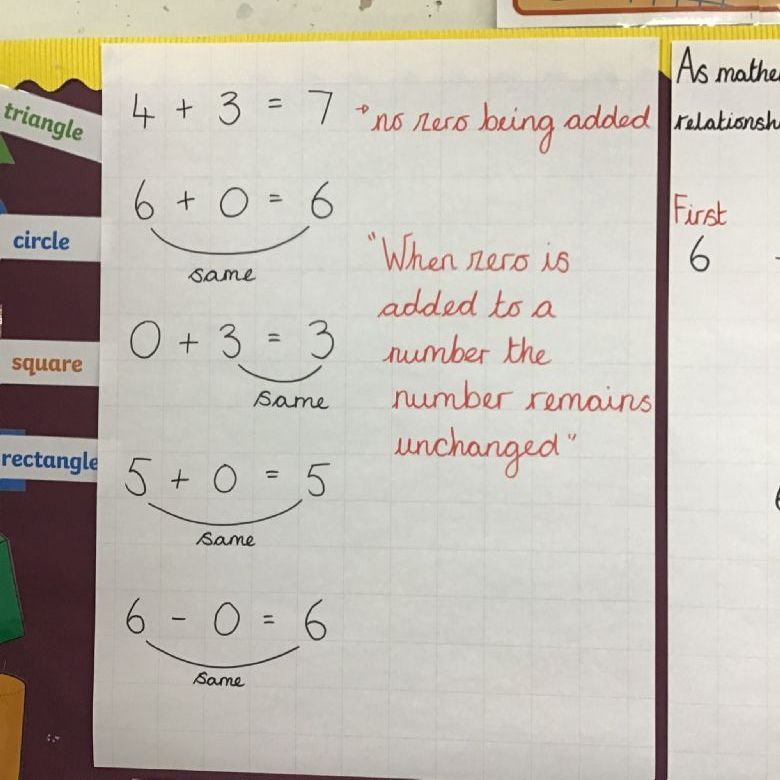 triangle
circle
square
rectangle
4 + 3 = 7 → no zero being added
6 + 0 = 6
same
0 + 3 = 3
same
5 + 0 = 5
same
6 - 0 = 6
same
"When zero is
added to a
number the
number remains
unchanged"
As
First
6